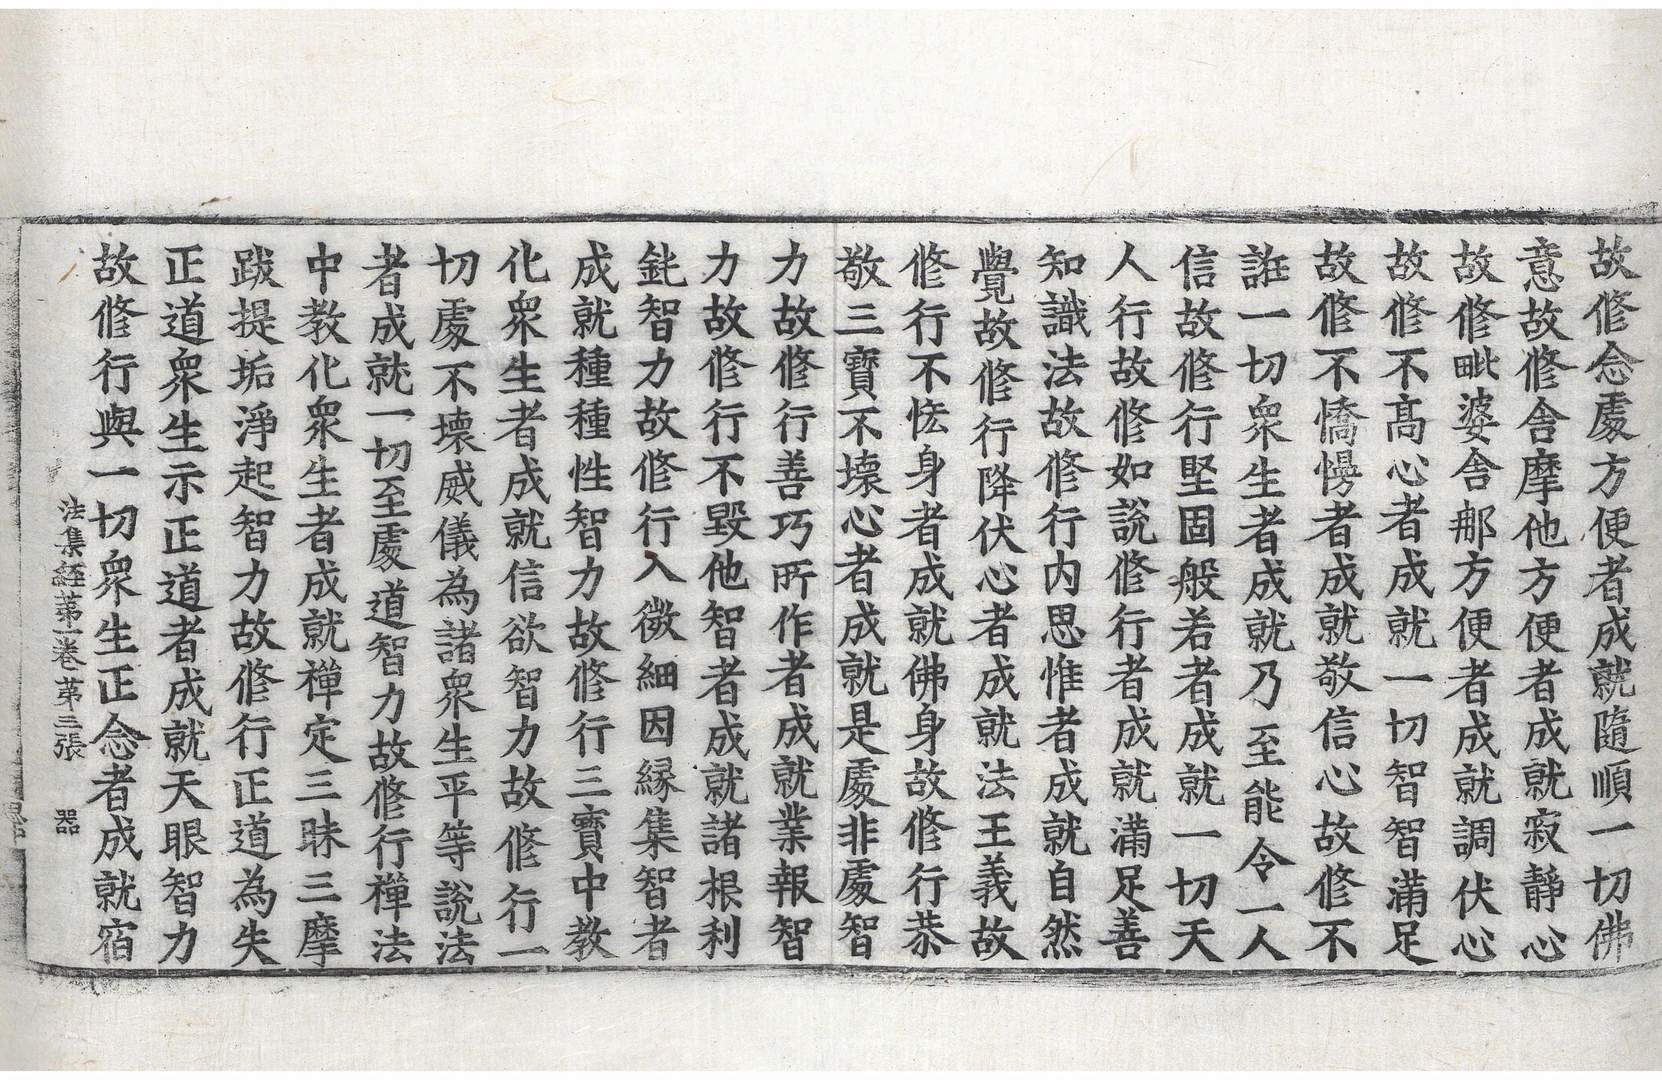 故修念處方便者成就隨順一切佛
意故修舍摩他方便者成就寂靜心
故修毗婆舍那方便者成就調伏心
故修不高心者成就一切智智滿足
故修不憍慢者成就敬信心故修不
誑一切衆生者成就乃至能令一人
信故修行堅固般若者成就一切天
人行故修如說修行者成就滿足善
知識法故修行內思惟者成就自然
覺故修行降伏心者成就法王義故
修行不恡身者成就佛身故修行恭
敬三寶不壞心者成就是處非處智
力故修行善巧所作者成就業報智
力故修行不毀他智者成就諸根利
鈍智力故修行入微細因緣集智者
成就種種性智力故修行三寶中教
化衆生者成就信欲智力故修行一
切處不壞威儀為諸衆生平等說法
者成就一切至處道智力故修行禪法
中教化衆生者成就禪定三昧三摩
跋提垢淨起智力故修行正道為失
正道衆生示正道者成就天眼智力
故修行與一切衆生正念者成就宿
法集経苐一卷 苐三張 器